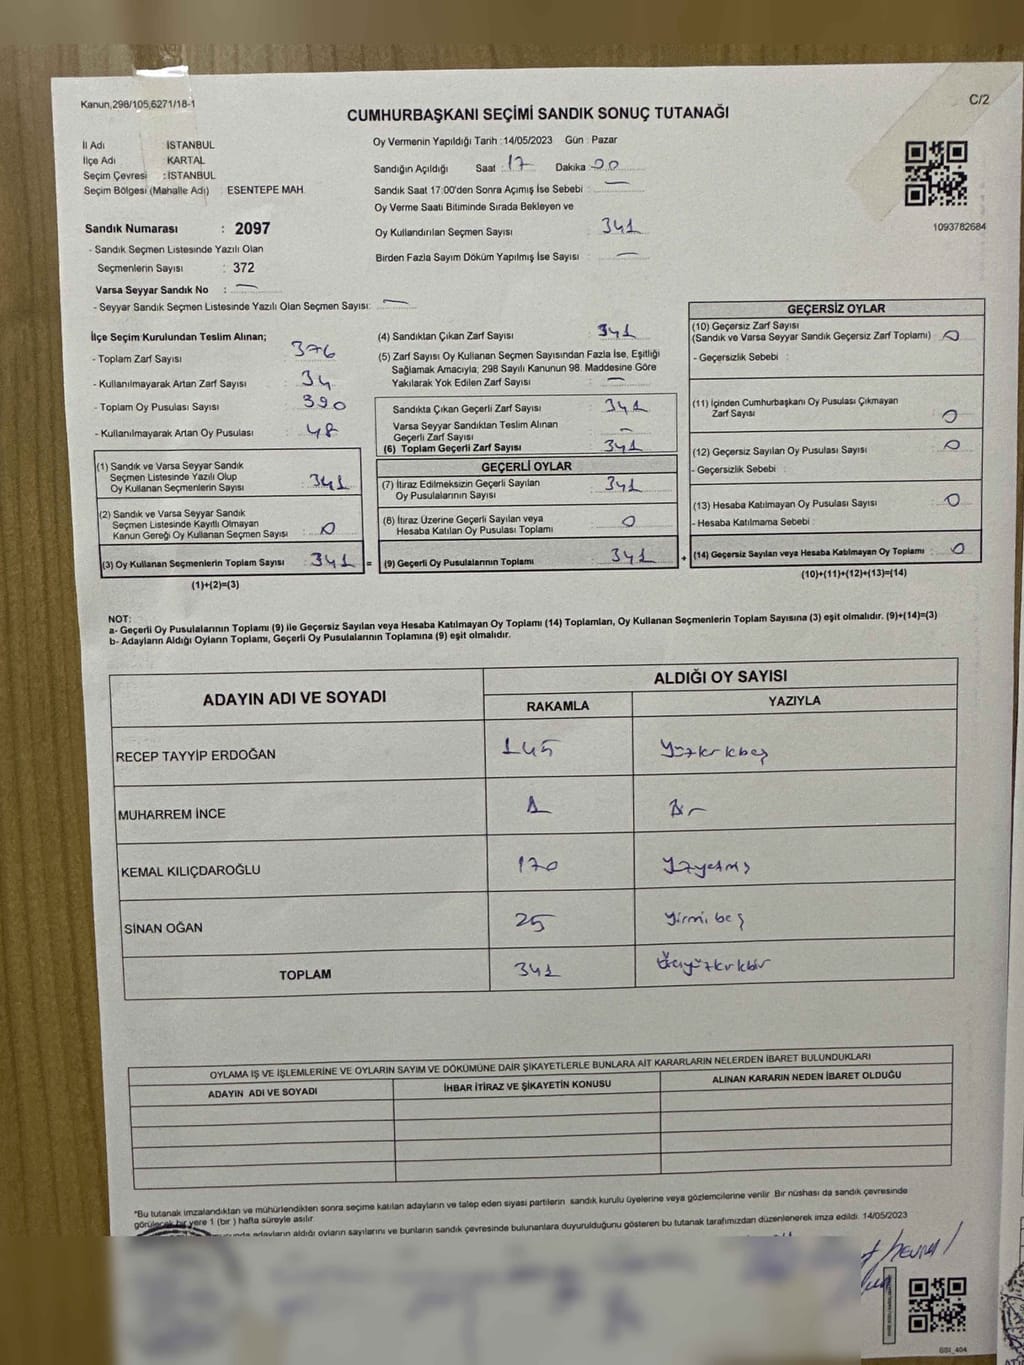 Kanun,298/105,6271/18-1
C/2
CUMHURBAŞKANI SEÇİMİ SANDIK SONUÇ TUTANAĞI
İl Adı : İSTANBUL
İlçe Adı : KARTAL
Seçim Çevresi : İSTANBUL
Seçim Bölgesi (Mahalle Adı) ESENTEPE MAH.
Oy Vermenin Yapıldığı Tarih : 14/05/2023 Gün : Pazar
Sandığın Açıldığı Saat : 17 Dakika : 00
Sandık Saat 17:00'den Sonra Açımış İse Sebebi : —
Oy Verme Saati Bitiminde Sırada Bekleyen ve
Oy Kullandırılan Seçmen Sayısı : 341
Birden Fazla Sayım Döküm Yapılmış İse Sayısı : —
1093782684
Sandık Numarası : 2097
- Sandık Seçmen Listesinde Yazılı Olan
Seçmenlerin Sayısı : 372
Varsa Seyyar Sandık No : —
- Seyyar Sandık Seçmen Listesinde Yazılı Olan Seçmen Sayısı: —
İlçe Seçim Kurulundan Teslim Alınan;
- Toplam Zarf Sayısı : 376
- Kullanılmayarak Artan Zarf Sayısı : 34
- Toplam Oy Pusulası Sayısı : 390
- Kullanılmayarak Artan Oy Pusulası : 48
(1) Sandık ve Varsa Seyyar Sandık
Seçmen Listesinde Yazılı Olup
Oy Kullanan Seçmenlerin Sayısı : 341
(2) Sandık ve Varsa Seyyar Sandık
Seçmen Listesinde Kayıtlı Olmayan
Kanun Gereği Oy Kullanan Seçmen Sayısı : 0
(3) Oy Kullanan Seçmenlerin Toplam Sayısı : 341 =
(1)+(2)=(3)
(4) Sandıktan Çıkan Zarf Sayısı : 341
(5) Zarf Sayısı Oy Kullanan Seçmen Sayısından Fazla İse, Eşitliği
Sağlamak Amacıyla, 298 Sayılı Kanunun 98. Maddesine Göre
Yakılarak Yok Edilen Zarf Sayısı : —
Sandıkta Çıkan Geçerli Zarf Sayısı : 341
Varsa Seyyar Sandıktan Teslim Alınan
Geçerli Zarf Sayısı : —
(6) Toplam Geçerli Zarf Sayısı : 341
GEÇERLİ OYLAR
(7) İtiraz Edilmeksizin Geçerli Sayılan
Oy Pusulalarının Sayısı : 341
(8) İtiraz Üzerine Geçerli Sayılan veya
Hesaba Katılan Oy Pusulası Toplamı : 0
(9) Geçerli Oy Pusulalarının Toplamı : 341 +
GEÇERSİZ OYLAR
(10) Geçersiz Zarf Sayısı
(Sandık ve Varsa Seyyar Sandık Geçersiz Zarf Toplamı) : 0
- Geçersizlik Sebebi :
(11) İçinden Cumhurbaşkanı Oy Pusulası Çıkmayan
Zarf Sayısı 0
(12) Geçersiz Sayılan Oy Pusulası Sayısı : 0
- Geçersizlik Sebebi :
(13) Hesaba Katılmayan Oy Pusulası Sayısı : 0
- Hesaba Katılmama Sebebi :
(14) Geçersiz Sayılan veya Hesaba Katılmayan Oy Toplamı : 0
(10)+(11)+(12)+(13)=(14)
NOT:
a- Geçerli Oy Pusulalarının Toplamı (9) ile Geçersiz Sayılan veya Hesaba Katılmayan Oy Toplamı (14) Toplamları, Oy Kullanan Seçmenlerin Toplam Sayısına (3) eşit olmalıdır. (9)+(14)=(3)
b- Adayların Aldığı Oyların Toplamı, Geçerli Oy Pusulalarının Toplamına (9) eşit olmalıdır.
ADAYIN ADI VE SOYADI
ALDIĞI OY SAYISI
RAKAMLA YAZIYLA
RECEP TAYYİP ERDOĞAN 145 Yüzkırkbeş
MUHARREM İNCE 1 Bir
KEMAL KILIÇDAROĞLU 170 Yüzyetmiş
SİNAN OĞAN 25 yirmi beş
TOPLAM 341 Üçyüzkırkbir
OYLAMA İŞ VE İŞLEMLERİNE VE OYLARIN SAYIM VE DÖKÜMÜNE DAİR ŞİKAYETLERLE BUNLARA AİT KARARLARIN NELERDEN İBARET BULUNDUKLARI
ADAYIN ADI VE SOYADI İHBAR İTİRAZ VE ŞİKAYETİN KONUSU ALINAN KARARIN NEDEN İBARET OLDUĞU
*Bu tutanak imzalandıktan ve mühürlendikten sonra seçime katılan adayların ve talep eden siyasi partilerin sandık kurulu üyelerine veya gözlemcilerine verilir. Bir nüshası da sandık çevresinde
görülecek bir yere 1 (bir ) hafta süreyle asılır.
adayların aldığı oyların sayılarını ve bunların sandık çevresinde bulunanlara duyurulduğunu gösteren bu tutanak tarafımızdan düzenlenerek imza edildi. 14/05/2023
GSI_404